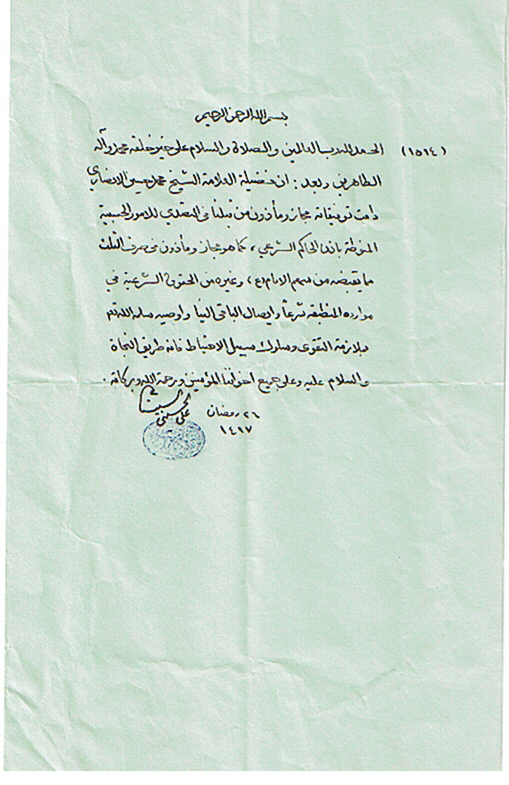 بسم الله الرحمن الرحيم
(١٥١٤) الحمد لله رب العالمين والصلاة والسلام على خير خلقه محمد وآله
الطاهرين وبعد : ان فضيلة العلامة الشيخ محمد حسين الانصاري
دامت توفيقاته مجاز ومأذون من قبلنا في التصدي للامور الحسبية
المنوطة باذن الحاكم الشرعي ، كما هو مجاز ومأذون في صرف الثلث
مما يقبضه من سهم الامام (ع) ، وغيره من الحقوق الشرعية في
موارده المنطبقه شرعاً وايصال الباقي الينا واوصيه سلمه الله تعالى
بملازمة التقوى وسلوك سبيل الاحتياط فانه طريق النجاة
والسلام عليه وعلى جميع اخواننا المؤمنين ورحمة الله وبركاته .
٢٦ رمضان
١٤١٧
علي الحسيني السيستاني